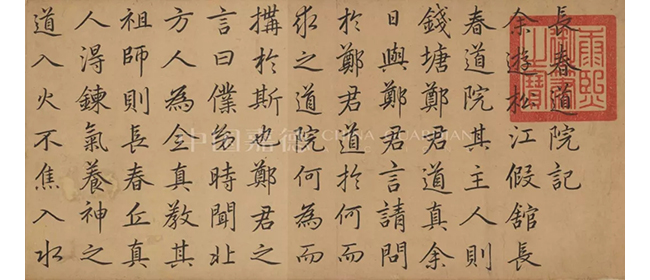 長春道院記
余遊松江假舘長
春道院其主人則
錢塘鄭君道真余
日與鄭君言請問
於鄭君道於何而
求之道院何為而
搆於斯也鄭君之
言曰僕幼時聞北
方人為全真教其
祖師則長春丘真
人淂鍊氣養神之
道入火不焦入水
康熙
之寶
中国嘉德 CHINA GUARDIAN